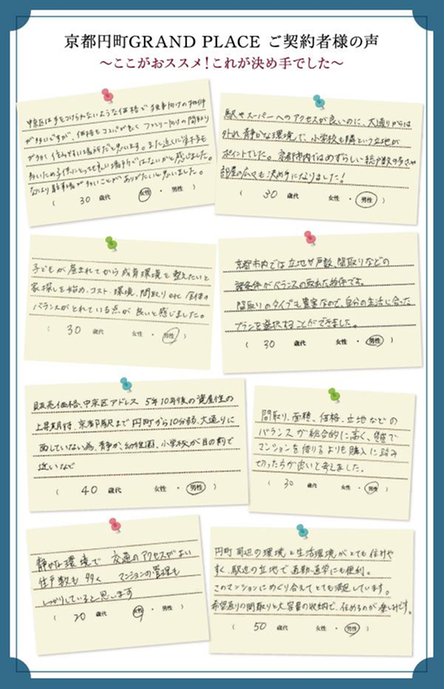 京都円町GRAND PLACE ご契約者様の声
～ここがおススメ！これが決め手でした～
中京区は手もつけられないような価格で 独身向けの物件
が多いですが、価格もコスパが良く ファミリー向けの間取り
なにより駐車場が多いことがありがたいと思いました。
( 30 歳代 女性 ・ 男性 )
駅やスーパーへのアクセスが良いのに、大通りからは
外れ 静かな環境で、小学校も隣という立地が
ポイントでした。京都市内ではめずらしい総戸数の多さや
部屋の広さも決め手になりました！
( 30 歳代 女性 ・ 男性 )
子どもが産まれてから成育環境を整えたいと
家探しを始め、コスト、環境、間取り etc 全体の
バランスがとれている点が良いと感じました。
( 30 歳代 女性 ・ 男性 )
京都市内では立地や戸数、間取りなどの
諸条件がバランスの取れた物件です。
間取りのタイプも豊富なので、自分の生活に合った
プランを選択することができました。
( 30 歳代 女性 ・ 男性 )
販売価格、中京区アドレス 5年10年後の資産性の
上昇期待、京都駅まで円町から10分弱、大通りに
面していない為、静か、幼稚園、小学校が目の前で
近いなど
( 40 歳代 女性 ・ 男性 )
間取り、面積、価格、立地などの
バランスが総合的に高く、賃貸で
マンションを借りるよりも購入に踏み
切ったらが良いと考えました。
( 30 歳代 女性 ・ 男性 )
静かな環境で 交通のアクセスがよい
住戸数も多く マンションの管理も
しっかりしていると思います
( 30 歳代 女性 ・ 男性 )
円町周辺の環境と生活環境がとても住みや
すく、駅近の立地で通勤・通学にも便利。
このマンションにめぐり合えてとても満足しています。
希望通りの間取りと大容量の収納で、住めるのが楽しみです。
( 50 歳代 女性 ・ 男性 )